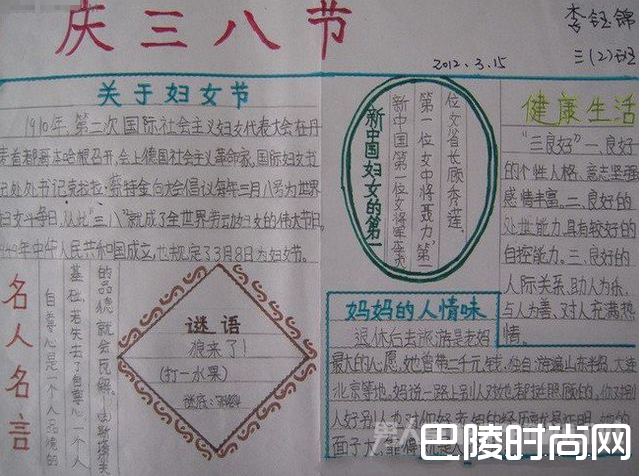 庆三八节
李钰锦
三(2)班
2012.3.15
关于妇女节
1910年,第二次国际社会主义妇女代表大会在丹
麦首都哥本哈根召开,会上德国社会主义革命家、国际妇女社
记处书记克拉拉·蔡特金向大会倡议每年三月八号为世界
妇女斗争日,从此“三八”就成了全世界劳动妇女的伟大节日。
中华人民共和国成立,也规定了3月8日为妇女节。
新中国妇女的第一
新中国第一位女将军
第一位女中将聂力,第一
位女省长顾秀莲,
健康生活
“三良好”一、良好
的个性人格、意志坚强
感情丰富。二、良好的
处世能力,具有较好的
自控能力。三、良好的
人际关系、助人为乐、
与人为善、对人充满热
情。
名人名言
自尊心是一个人品德的
基础,若失去了自尊心,一个人
的品德就会瓦解。
谜语
狼来了!
(打一水果)
谜底:
妈妈的人情味
退休后去旅游是老妈
最大的心愿,她曾带二千元钱,独自游遍山东半岛、大连
北京等地。妈说一路上别人对她都挺照顾的,你对别
人好别人力对你好,
面子
巴陵时尚网